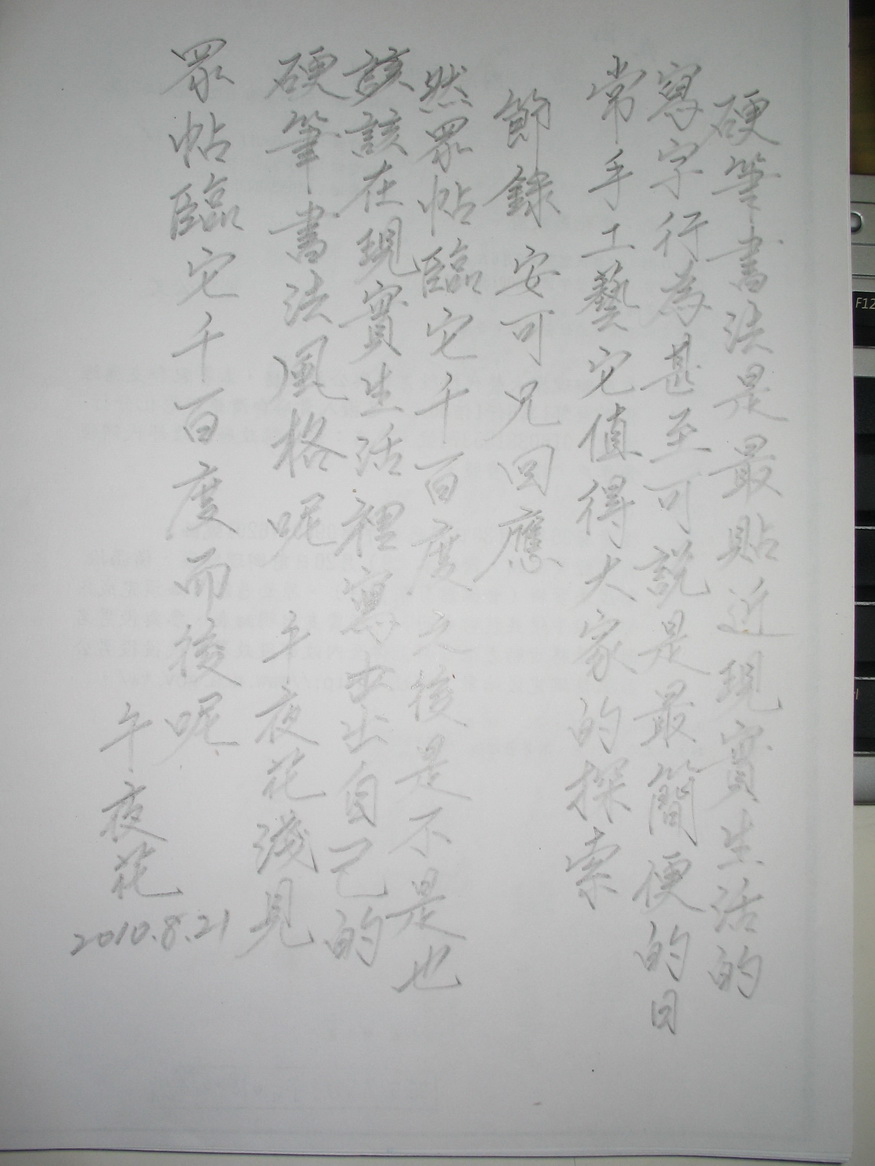 硬筆書法是最貼近現實生活的
寫字行為甚至可說是最簡便的日
常手工藝它值得大家的探索
節錄安可兄回應
然眾帖臨它千百度之後是不是也
該該在現實生活裡寫出出自己的
硬筆書法風格呢 午夜花淺見
眾帖臨它千百度而後呢
午夜花
2010.8.21
F12